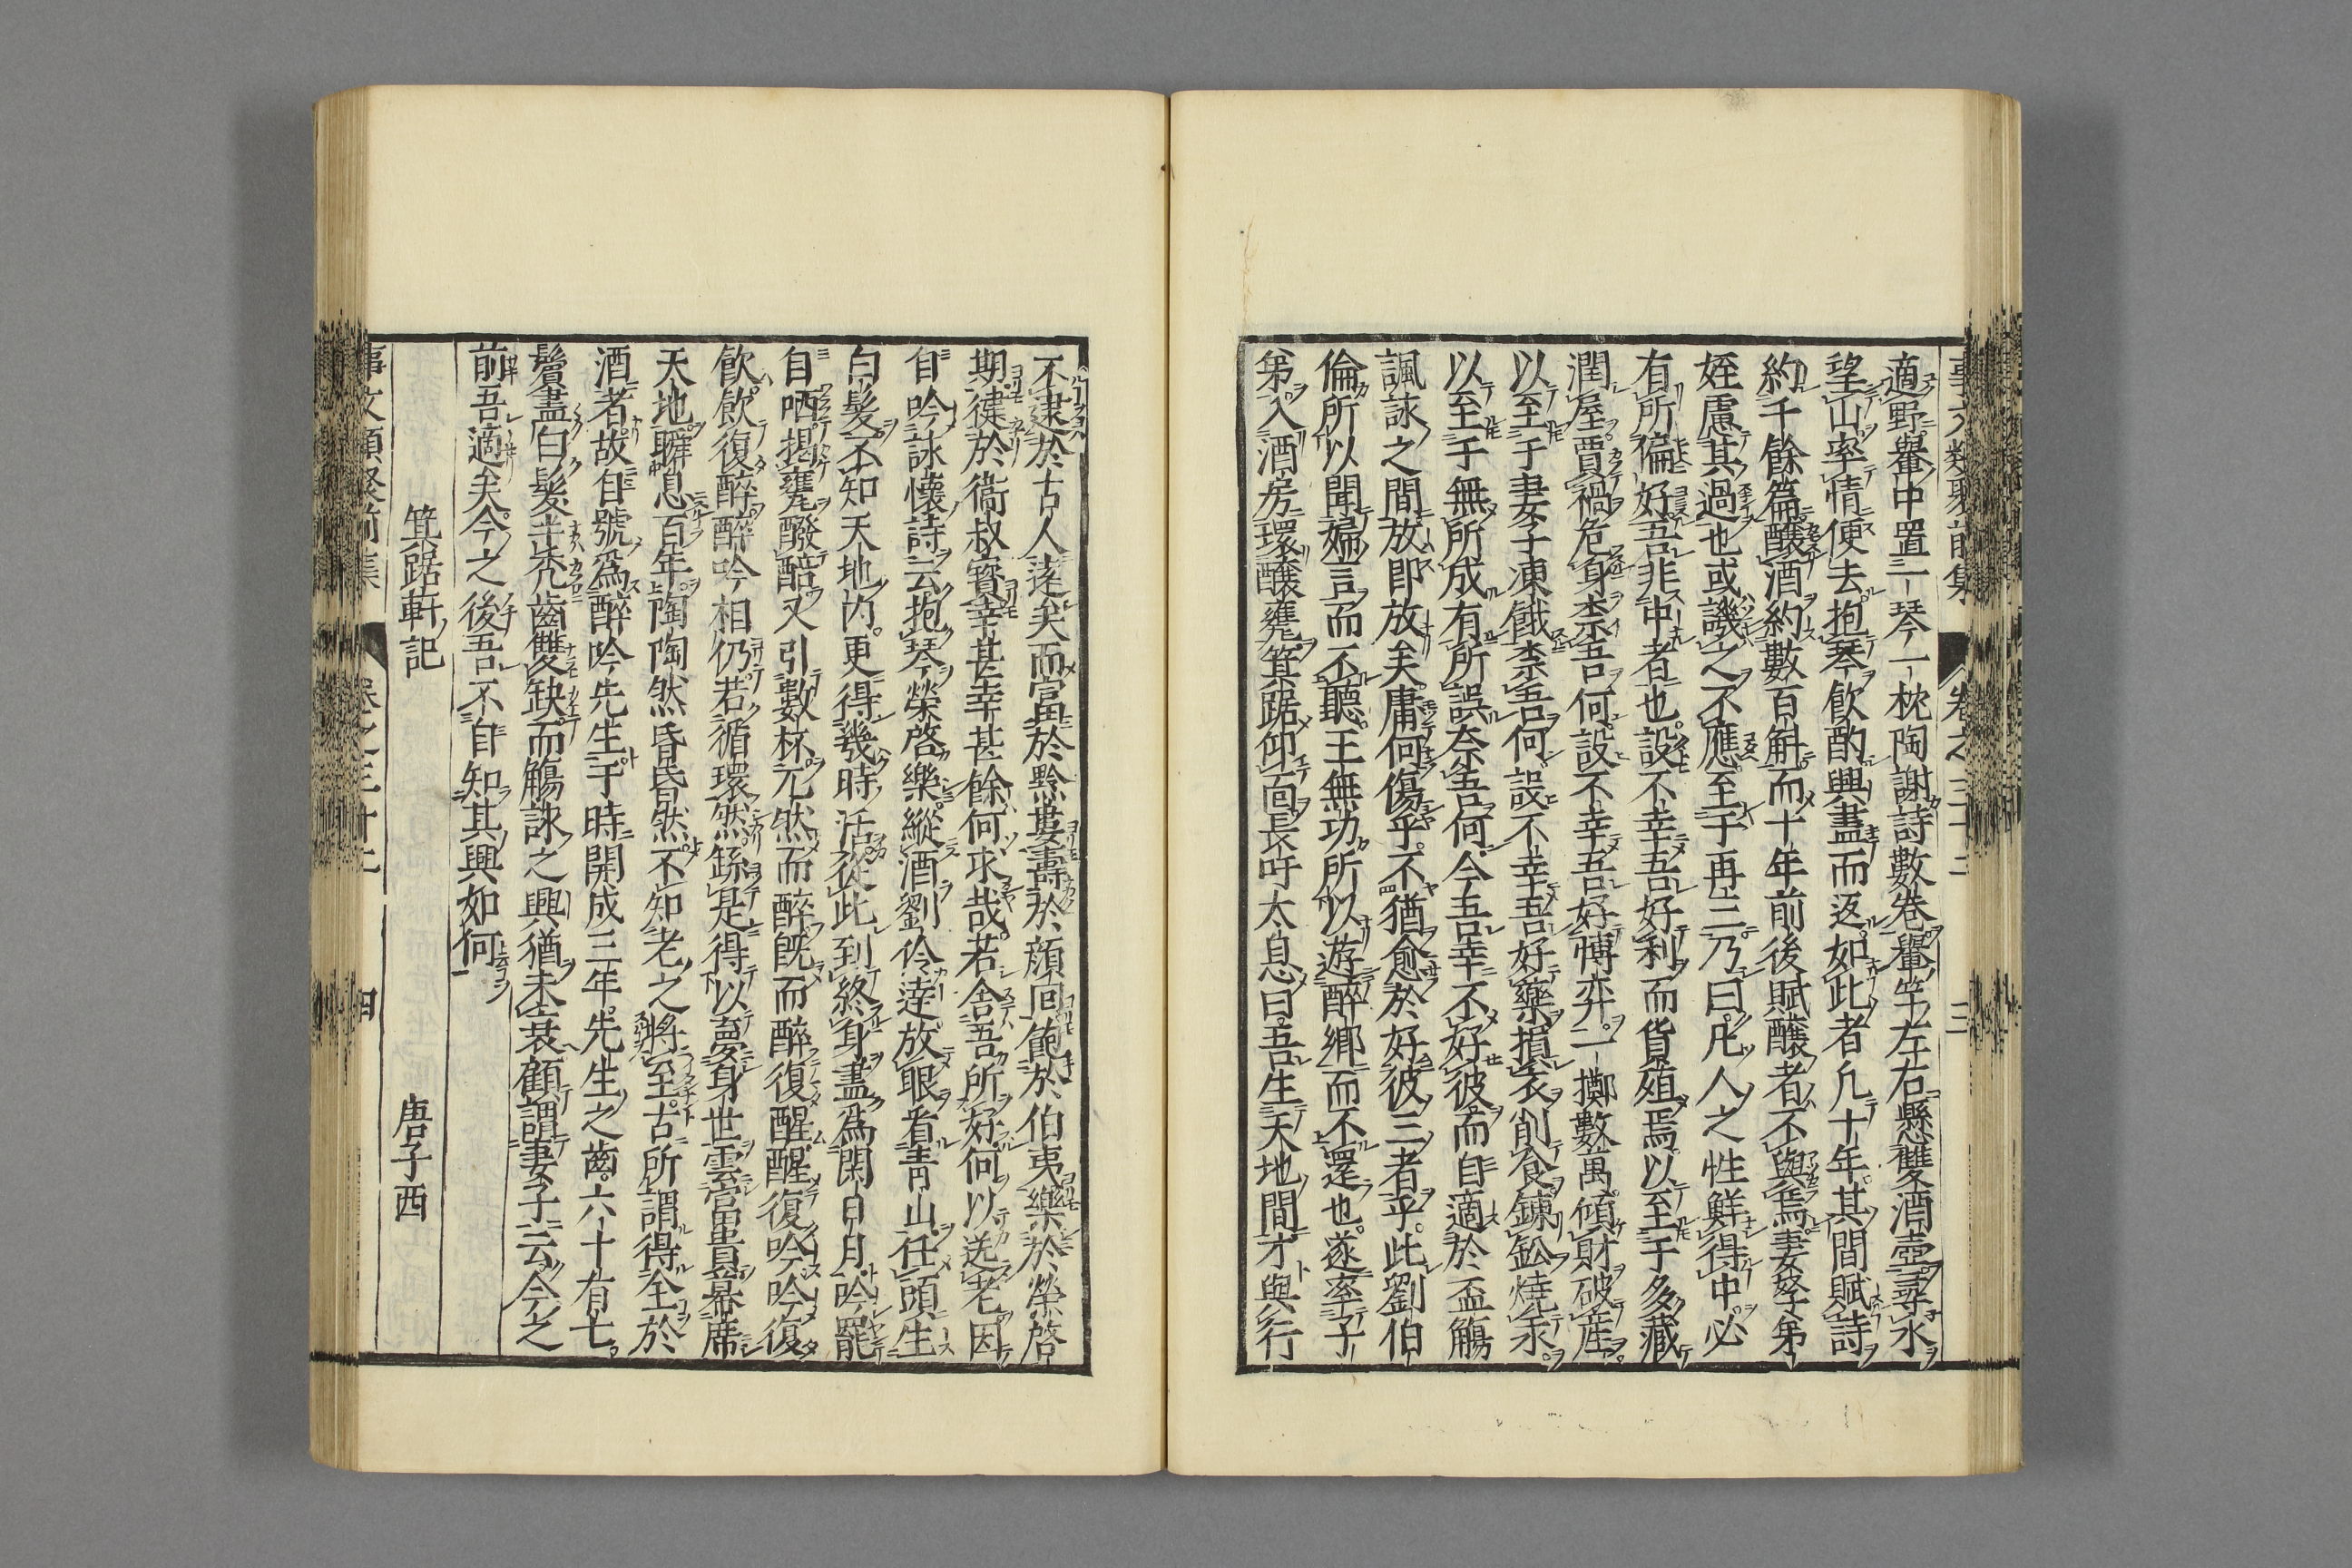 事文類聚前集 卷之三十三 三
適野轝中置一琴一枕陶謝詩數卷轝竿左右懸雙酒壺尋水
望山率情便去抱琴飲酌興盡而返如此者凢十年其間賦詩
約千餘篇釀酒約數百斛而十年前後賦釀者不與焉妻孥弟
姪慮其過也或譏之不應至于再三乃曰凢人之性鮮得中必
有所偏好吾非中者也設不幸吾好利而貨殖焉以至于多藏
潤屋賈禍危身柰吾何設不幸吾好博弈一擲數萬傾財破産
以至于妻子凍餓柰吾何設不幸吾好藥損衣削食鍊鈆燒汞
以至于無所成有所誤奈吾何今吾幸不好彼而自適於盃觴
諷詠之間放即放矣庸何傷乎不猶愈於好彼三者乎此劉伯
倫所以聞婦言而不聽王無功所以遊醉鄉而不還也遂率子
弟入酒房環釀甕箕踞仰面長吁太息曰吾生天地間才與行
不逮於古人遠矣而富於黔婁壽於顔回飽於伯夷樂於榮啓
期徤於衞叔寳幸甚幸甚餘何求哉若舍吾所好何以送老因
自吟詠懷詩云抱琴榮啓樂縱酒劉伶達放眼看青山任頭生
白髮不知天地內更得幾時活從此到終身盡爲閑日月吟罷
自哂揭甕醱醅又引數杯兀然而醉旣而醉復醒醒復吟吟復
飲飲復醉醉吟相仍若循環然繇是得以夢身世雲富貴幕席
天地瞬息百年陶陶然昏昏然不知老之將至古所謂得全於
酒者故自號爲醉吟先生于時開成三年先生之齒六十有七
鬢盡白髮半禿齒雙缺而觴詠之興猶未衰顧謂妻子云今之
前吾適矣今之後吾不自知其興如何
箕踞軒記 唐子西
事文類聚前集 卷之三十三 四